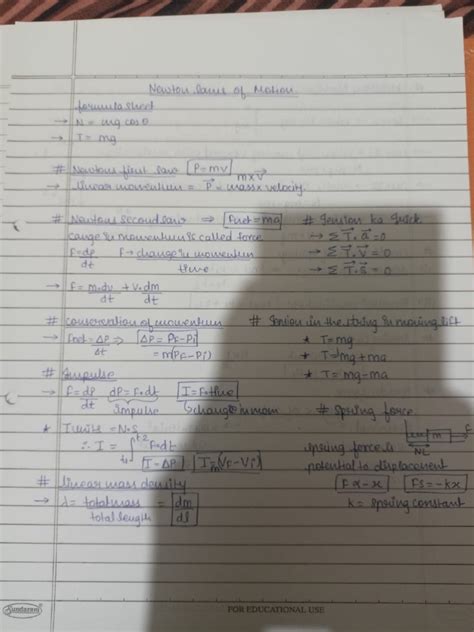 Newton laws of Motion
formula sheet
→ N = mg cosθ
→ T = mg
# Newtons first law [P = mv]
→ linear momentum = P⃗ = mass x velocity. m x V⃗
# Newtons second law ⇒ [Fnet = ma]
cange in momentum is called force
F = dp/dt F → change in momentum/time
→ F = m.dv/dt + v.dm/dt
# Tension ka trick
→ Σ T⃗.a⃗ = 0
→ Σ T⃗.V⃗ = 0
→ Σ T⃗.S⃗ = 0
# conservation of momentum
→ Fnet = ΔP/dt ⇒ [ΔP = PF - Pi]
= m(PF - Pi)
# Tension in the string in moving lift
* T = mg
* T = mg + ma
* T = mg - ma
# Impulse
→ F = dp/dt dp = F.dt [I = F x time]
impulse change in mom
* Τunits = N.S
∴ I = ∫ t1 t2 F.dt
[I = ΔP] [I = m(VF - Vi)]
# Spring force
m
NL
spring force is
potential to displacement
[F ∝ -x] [FS = -kx]
k = spring constant
# linear mass density
→ λ = total mass/total length = [dm/dl]
Sundaram
FOR EDUCATIONAL USE